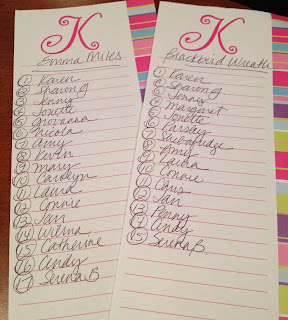 K
Emma Miles
1 Karen
2 Sharon G
3 Jenny
4 Jonette
5 Giovanna
6 Nicola
7 Amy
8 Kevin
9 Mary
10 Carolyn
11 Laura
12 Connie
13 Jan
14 Wilma
15 Catherine
16 Cindy
17 Serena B
K
Wreath
1 Karen
2 Sharon G
3 Jenny
4 Margaret
5 Jonette
6 Parsley
7
8 Amy
9 Laura
10 Connie
11 Chris
12 Jan
13 Penny
14 Cindy
15 Serena B.